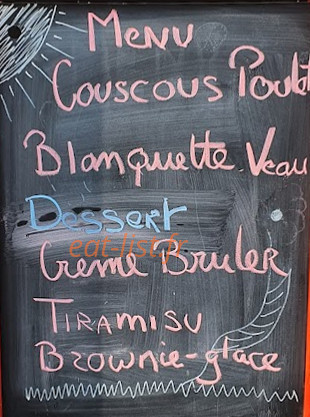 Menu
Couscous Poulet
Blanquette Veau
Dessert
eat-list.fr
Crème Bruler
Tiramisu
Brownie-glace